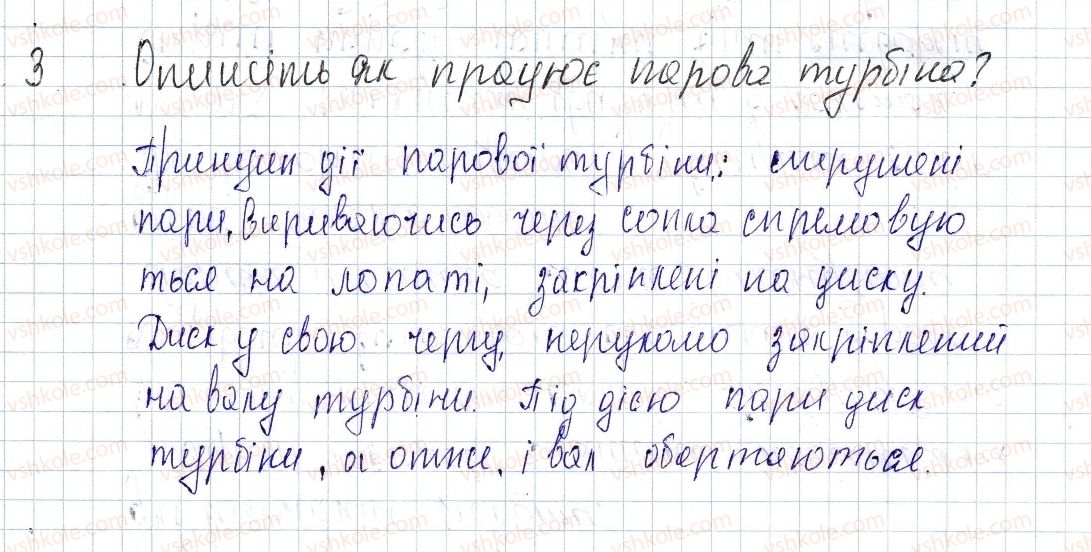 3 Опишіть як працює парова турбіна?
Принцип дії парової турбіни: струмені
пари, вириваючись через сопла спрямовую
ться на лопаті, закріплені на диску.
Диск у свою чергу, нерухомо закріплений
на валу турбіни. Під дією пари диск
турбіни, а отже, і вал обертаються.